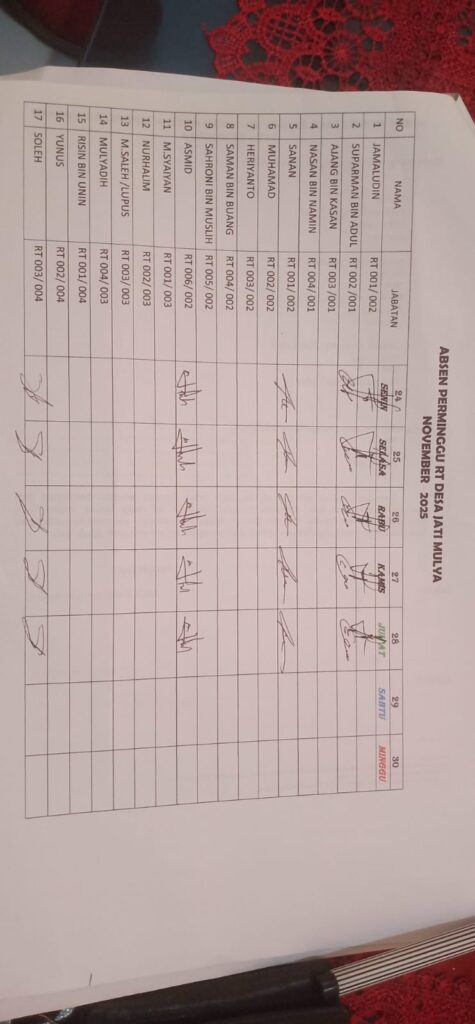 ABSEN PERMINGGU RT DESA JATI MULYA
NOVEMBER 2025
NO NAMA JABATAN 24 25 26 27 28 29 30
SENIN SELASA RABU KAMIS JUM'AT SABTU MINGGU
1 JAMALUDIN RT 001/ 002
2 SUPARMAN BIN ADUL RT 002 /001
3 AJANG BIN KASAN RT 003 /001
4 NASAN BIN NAMIN RT 004/ 001
5 SANAN RT 001/ 002
6 MUHAMAD RT 002/ 002
7 HERIYANTO RT 003/ 002
8 SAMAN BIN BUANG RT 004/ 002
9 SAHRONI BIN MUSLIH RT 005/ 002
10 ASMID RT 006/ 002
11 M.SYAIYAN RT 001/ 003
12 NURHALIM RT 002/ 003
13 M.SALEH /LUPUS RT 003/ 003
14 MULYADIH RT 004/ 003
15 RISIN BIN UNIN RT 001/ 004
16 YUNUS RT 002/ 004
17 SOLEH RT 003/ 004